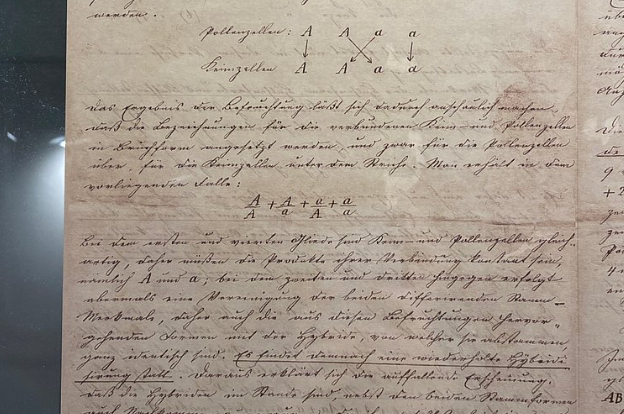 werden.
Pollenzellen: A A a a
Keimzellen A A a a
Das Ergebnis der Befruchtung läßt sich dadurch anschaulich machen,
daß die Bezeichnungen für die verbundenen Keim- und Pollenzellen
in Bruchform angesetzt werden, und zwar für die Pollenzellen
über, für die Keimzellen unter dem Striche. Man erhält in dem
vorliegenden Falle:
A/A + A/a + a/A + a/a
Bei dem ersten und vierten Gliede sind Keim- und Pollenzellen gleich-
artig, daher müßen die Produkte ihrer Verbindung konstant sein,
nämlich A und a; bei dem zweiten und dritten hingegen erfolgt
abermals eine Vereinigung der beiden differirenden Stamm-
Merkmale, daher auch die aus diesen Befruchtungen hervor-
gehenden Formen mit der Hybride, von welcher sie abstammen,
ganz identisch sind. Es findet demnach eine wiederholte Hybridi-
sirung statt. Daraus erklärt sich die auffallende Erscheinung,
daß die Hybriden im Stande sind, nebst den beiden Stammformen
AB